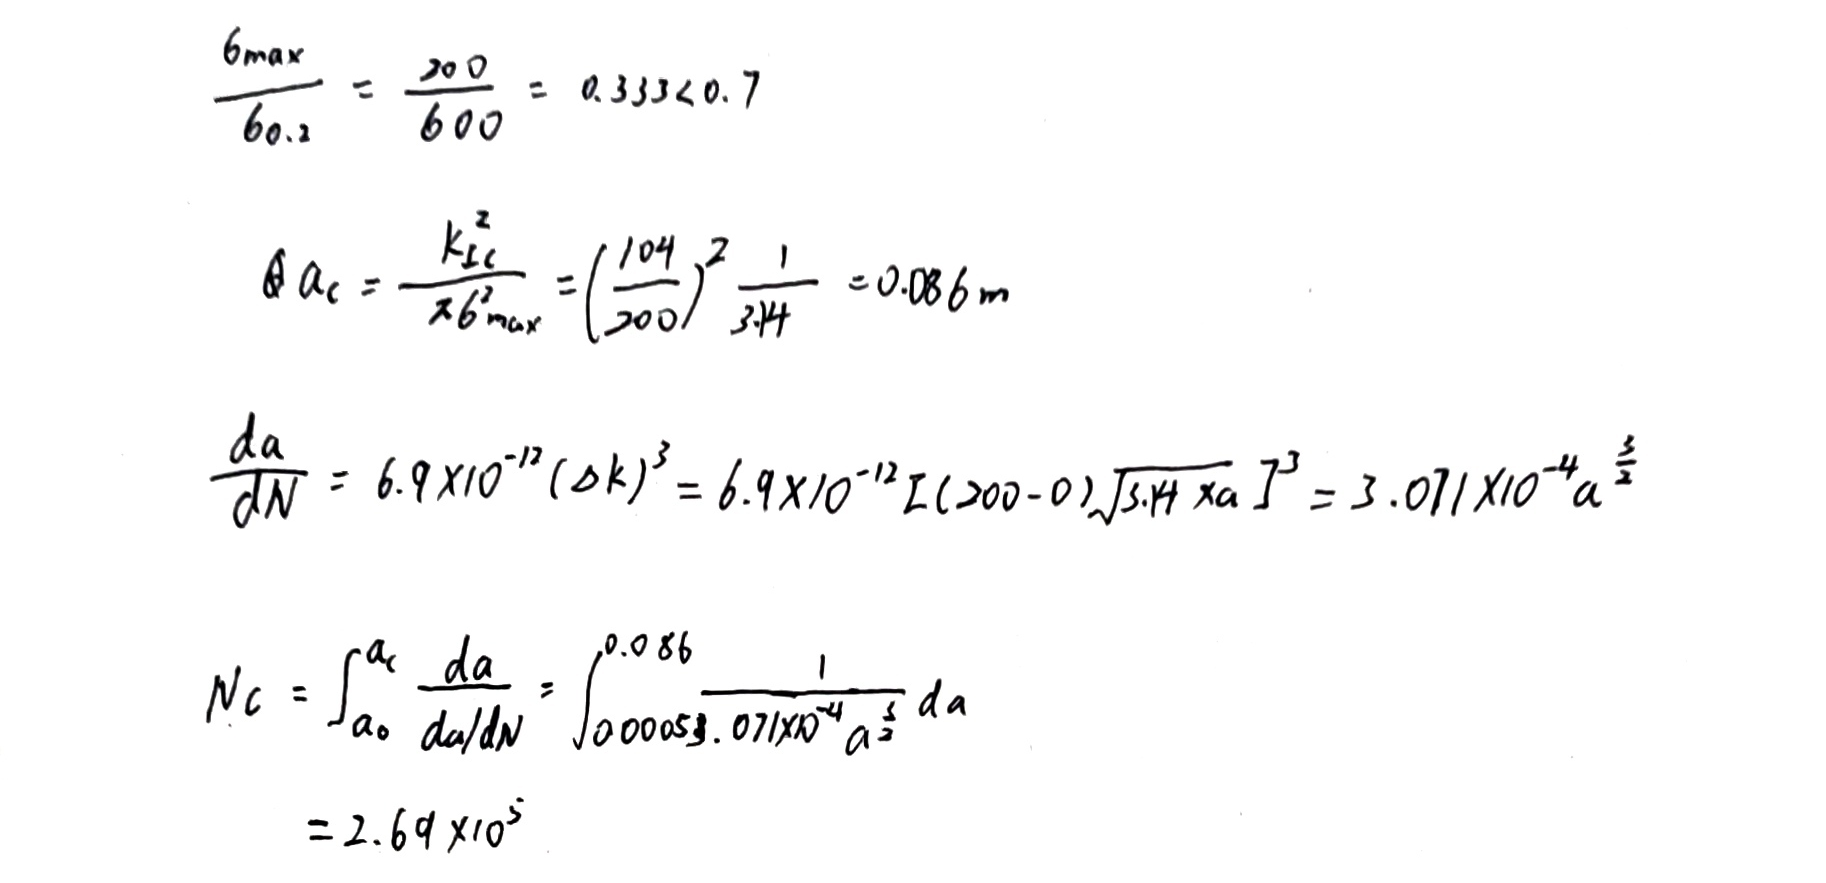 σmax / σ0.2 = 200 / 600 = 0.333 < 0.7
ac = KIc² / πσ²max = (104 / 200)² 1 / 3.14 = 0.086 m
da / dN = 6.9 × 10⁻¹² (Δk)³ = 6.9 × 10⁻¹² [(200 - 0) √(3.14 × a)]³ = 3.071 × 10⁻⁴ a^(3/2)
Nc = ∫_a₀^ac da / (da/dN) = ∫_0.0005^0.086 1 / (3.071 × 10⁻⁴ a^(3/2)) da
= 2.69 × 10⁵